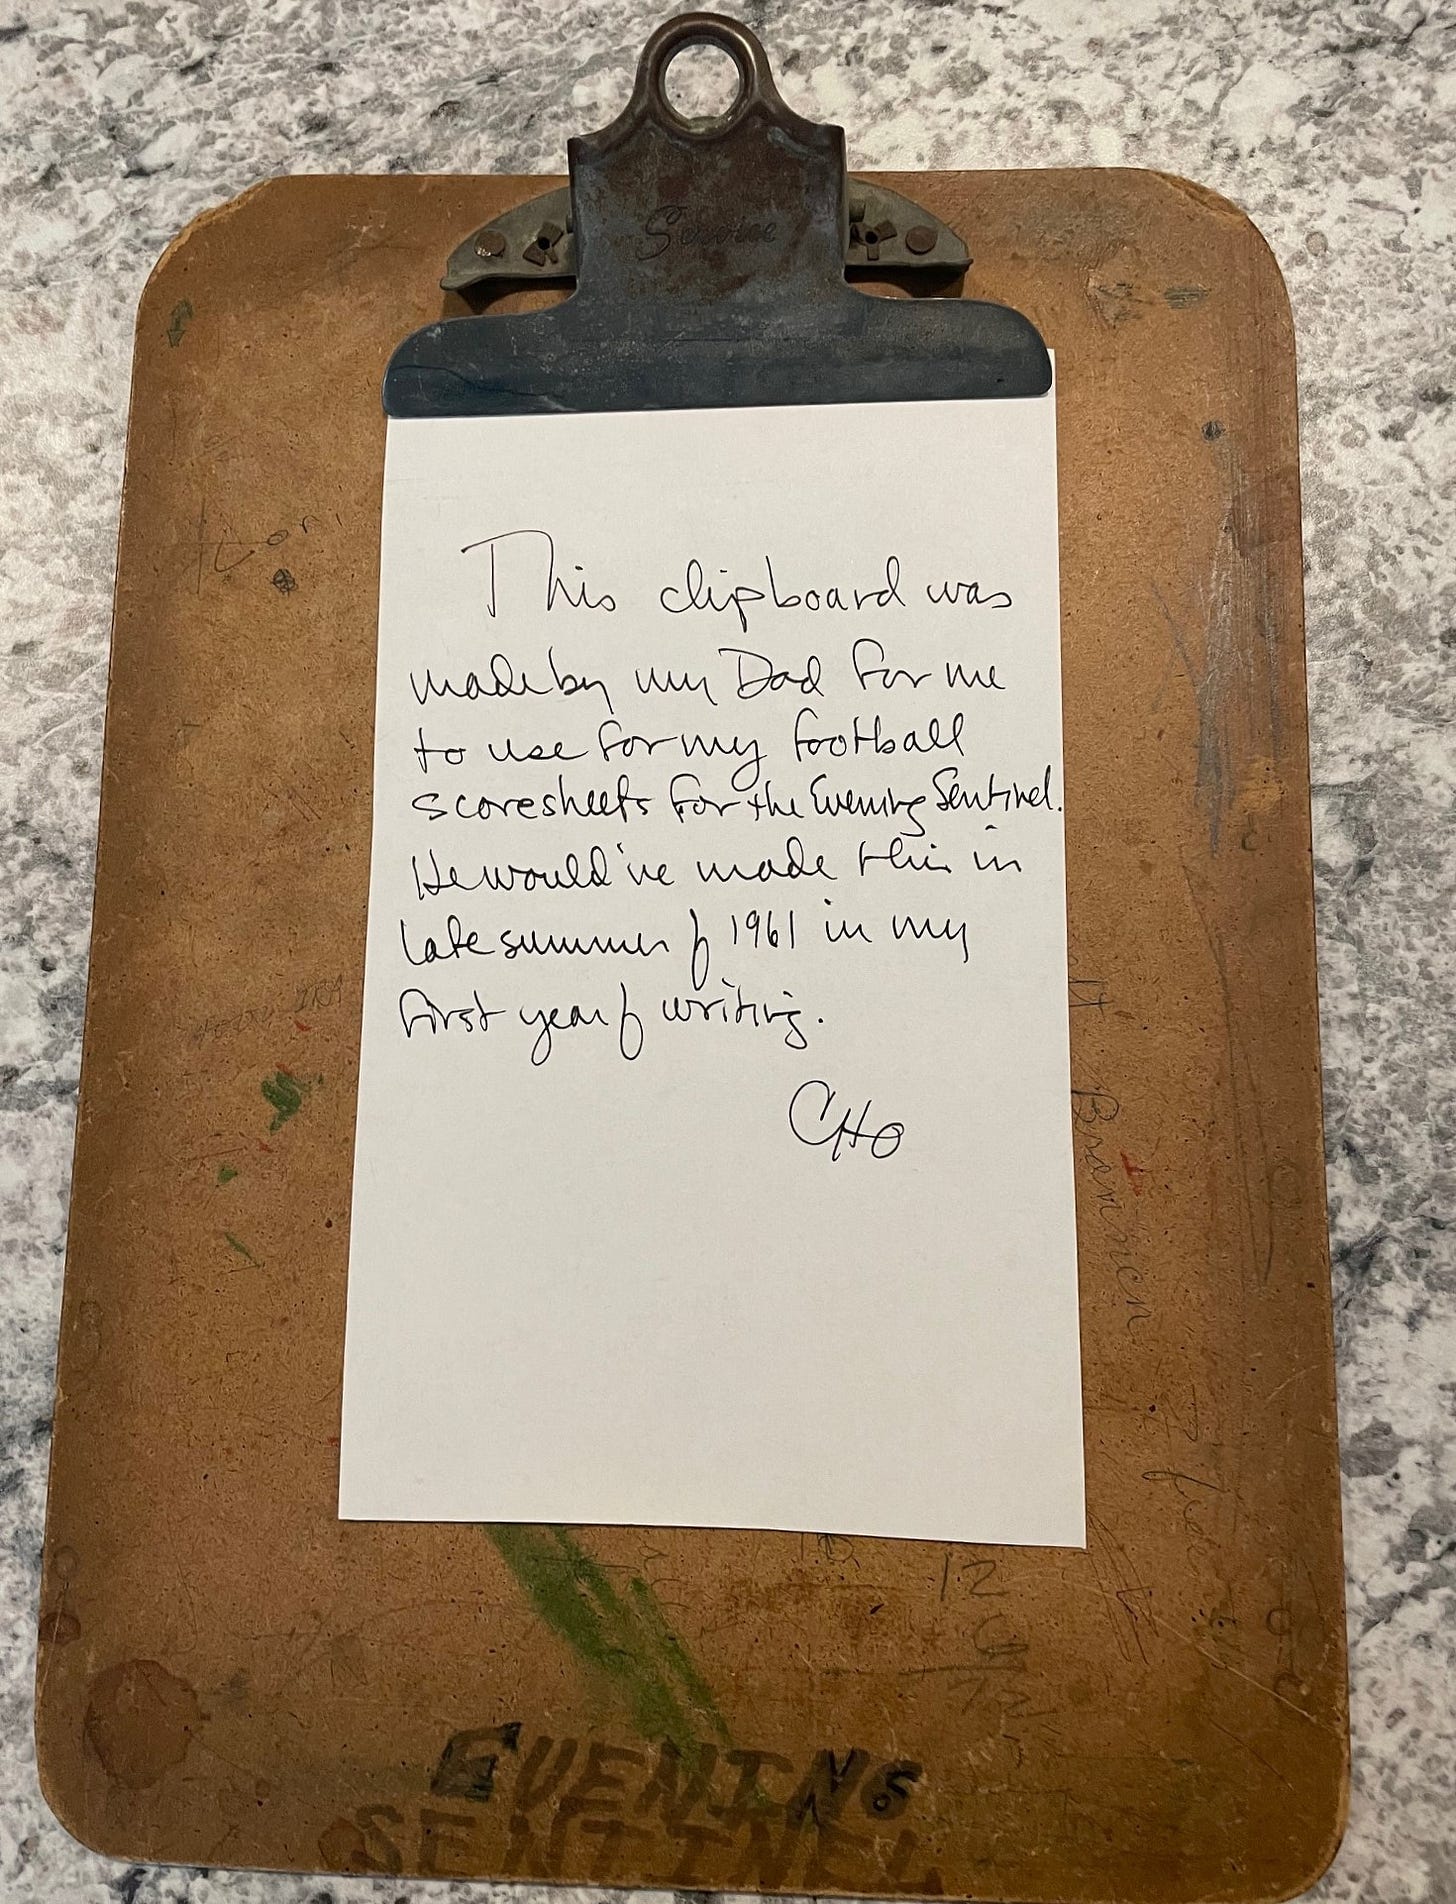 Service
This clipboard was
made by my Dad for me
to use for my football
scoresheets for the Evening Sentinel.
He would've made this in
late summer of 1961 in my
first year of writing.
CHO
Brannen
12
6
72
EVENING
SENTINEL